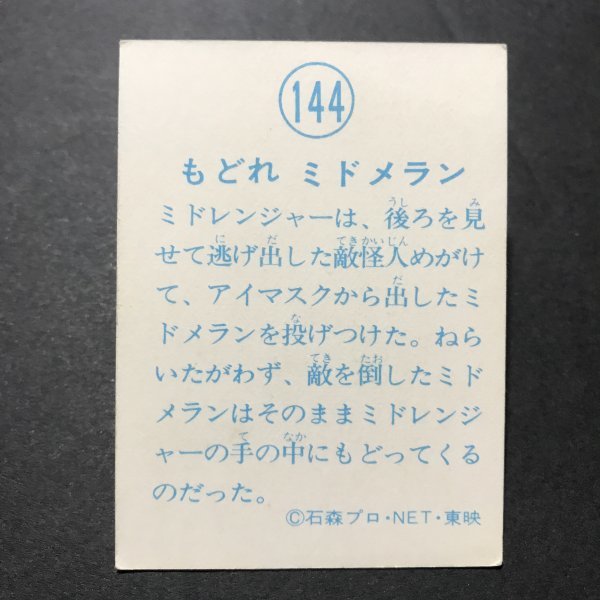 144
もどれ ミドメラン
ミドレンジャーは、後ろを見
せて逃げ出した敵怪人めがけ
て、アイマスクから出したミ
ドメランを投げつけた。ねら
いたがわず、敵を倒したミド
メランはそのままミドレンジ
ャーの手の中にもどってくる
のだった。
©石森プロ・NET・東映